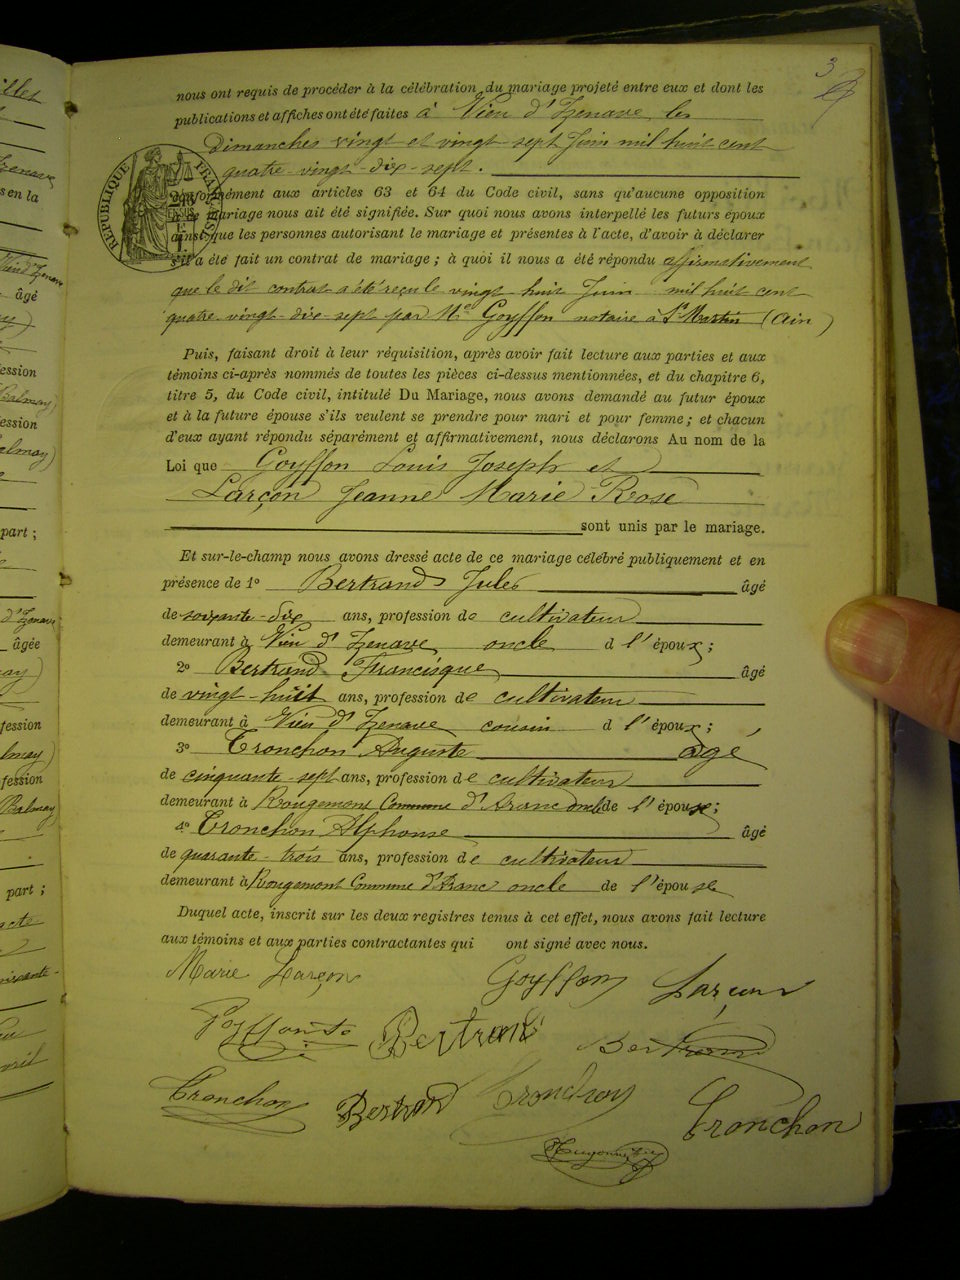 3
nous ont requis de procéder à la célébration du mariage projeté entre eux et dont les
publications et affiches ont été faites à Vieu d'Izenave les
Dimanches vingt et vingt-sept Juin mil huit cent
quatre-vingt-dix-sept.
RÉPUBLIQUE FRANÇAISE
conformément aux articles 63 et 64 du Code civil, sans qu'aucune opposition
mariage nous ait été signifiée. Sur quoi nous avons interpellé les futurs époux
ainsi que les personnes autorisant le mariage et présentes à l'acte, d'avoir à déclarer
s'il a été fait un contrat de mariage ; à quoi il nous a été répondu affirmativement
que le dit contrat a été reçu le vingt-huit Juin mil huit cent
quatre-vingt-dix-sept par Me Goyffon notaire à St Martin (Ain)
Puis, faisant droit à leur réquisition, après avoir fait lecture aux parties et aux
témoins ci-après nommés de toutes les pièces ci-dessus mentionnées, et du chapitre 6,
titre 5, du Code civil, intitulé Du Mariage, nous avons demandé au futur époux
et à la future épouse s'ils veulent se prendre pour mari et pour femme ; et chacun
d'eux ayant répondu séparément et affirmativement, nous déclarons Au nom de la
Loi que Goyffon Louis Joseph et
Larçon Jeanne Marie Rose
sont unis par le mariage.
Et sur-le-champ nous avons dressé acte de ce mariage célébré publiquement et en
présence de 1º Bertrand Jules âgé
de soixante-dix ans, profession de cultivateur
demeurant à Vieu d'Izenave oncle d l'époux ;
2º Bertrand Francisque âgé
de vingt-huit ans, profession de cultivateur
demeurant à Vieu d'Izenave cousin d l'époux ;
3º Tronchon Auguste âgé
de cinquante-sept ans, profession de cultivateur
demeurant à Rougemont Commune d'Aranc oncle de l'épouse ;
4º Tronchon Alphonse âgé
de quarante-trois ans, profession de cultivateur
demeurant à Rougemont Commune d'Aranc oncle de l'épouse
Duquel acte, inscrit sur les deux registres tenus à cet effet, nous avons fait lecture
aux témoins et aux parties contractantes qui ont signé avec nous.
Marie Larçon Goyffon Larçon
Goyffon Bertrand Bertrand
Tronchon Bertrand Tronchon Tronchon